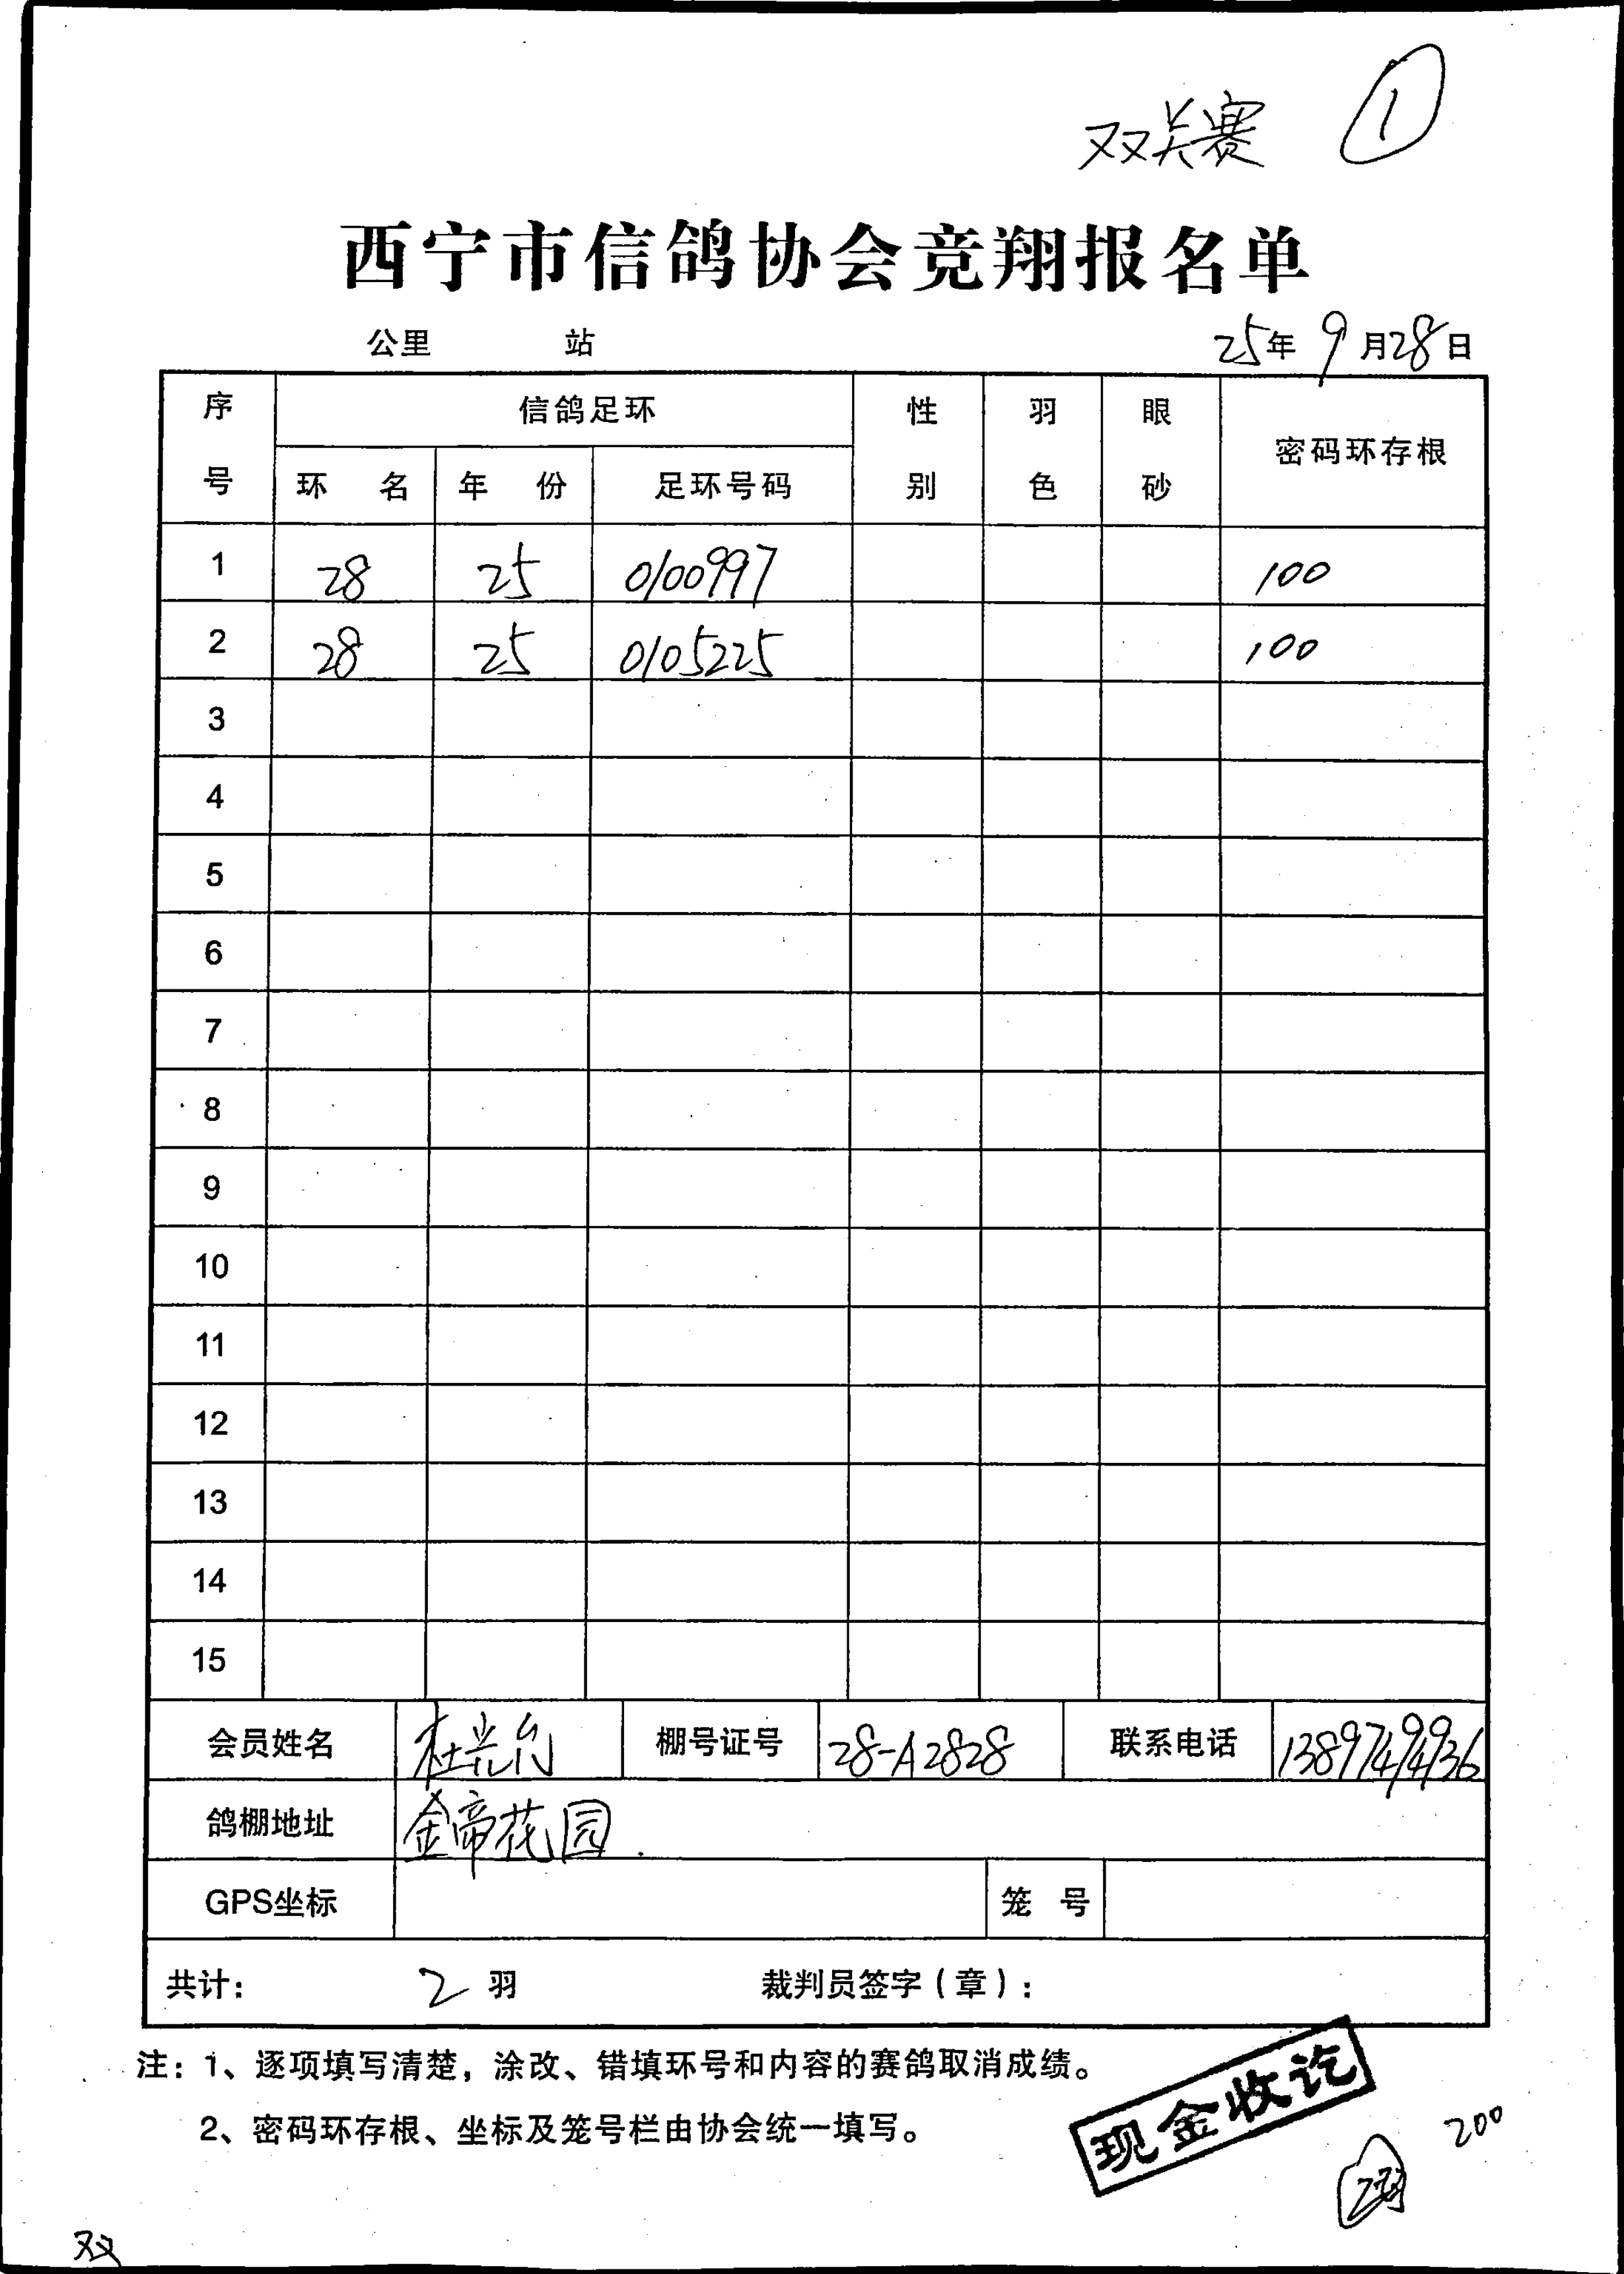 双关赛 ①
西宁市信鸽协会竞翔报名单
公里 站 25年 9月28日
序号 信鸽足环 性别 羽色 眼砂 密码环存根
环名 年份 足环号码
1 28 25 0100997 100
2 28 25 0105225 100
3
4
5
6
7
8
9
10
11
12
13
14
15
会员姓名 杜光 棚号证号 28-A2828 联系电话 13897494936
鸽棚地址 金帝花园
GPS坐标 笼号
共计： 2 羽 裁判员签字（章）：
注：1、逐项填写清楚，涂改、错填环号和内容的赛鸽取消成绩。
2、密码环存根、坐标及笼号栏由协会统一填写。
现金收讫
200
双